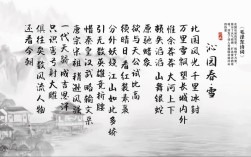 《毛泽东诗词》
沁园春雪
北国风光千里冰封
万里雪飘望长城内外
惟余莽莽大河上下
顿失滔滔山舞银蛇
原驰蜡象
欲与天公试比高
须晴日看红装素裹
分外妖娆江山如此多娇
引无数英雄竞折腰
惜秦皇汉武略输文采
唐宗宋祖稍逊风骚
一代天骄成吉思汗
只识弯弓射大雕
俱往矣数风流人物
还看今朝